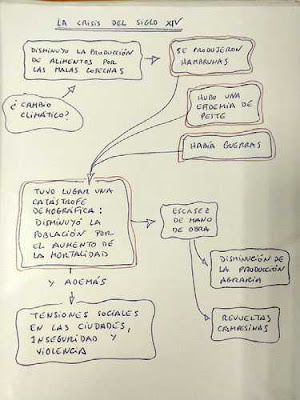 LA CRISIS DEL SIGLO XIV
DISMINUYÓ LA PRODUCCIÓN
DE ALIMENTOS POR
LAS MALAS COSECHAS
SE PRODUJERON
HAMBRUNAS
¿CAMBIO
CLIMÁTICO?
HUBO UNA
EPIDEMIA DE
PESTE
HABÍA GUERRAS
TUVO LUGAR UNA
CATÁSTROFE
DEMOGRÁFICA:
DISMINUYÓ LA
POBLACIÓN POR
EL AUMENTO DE
LA MORTALIDAD
ESCASEZ
DE MANO
DE OBRA
DISMINUCIÓN DE
LA PRODUCCIÓN
AGRARIA
REVUELTAS
CAMPESINAS
Y ADEMÁS
TENSIONES SOCIALES
EN LAS CIUDADES,
INSEGURIDAD Y
VIOLENCIA